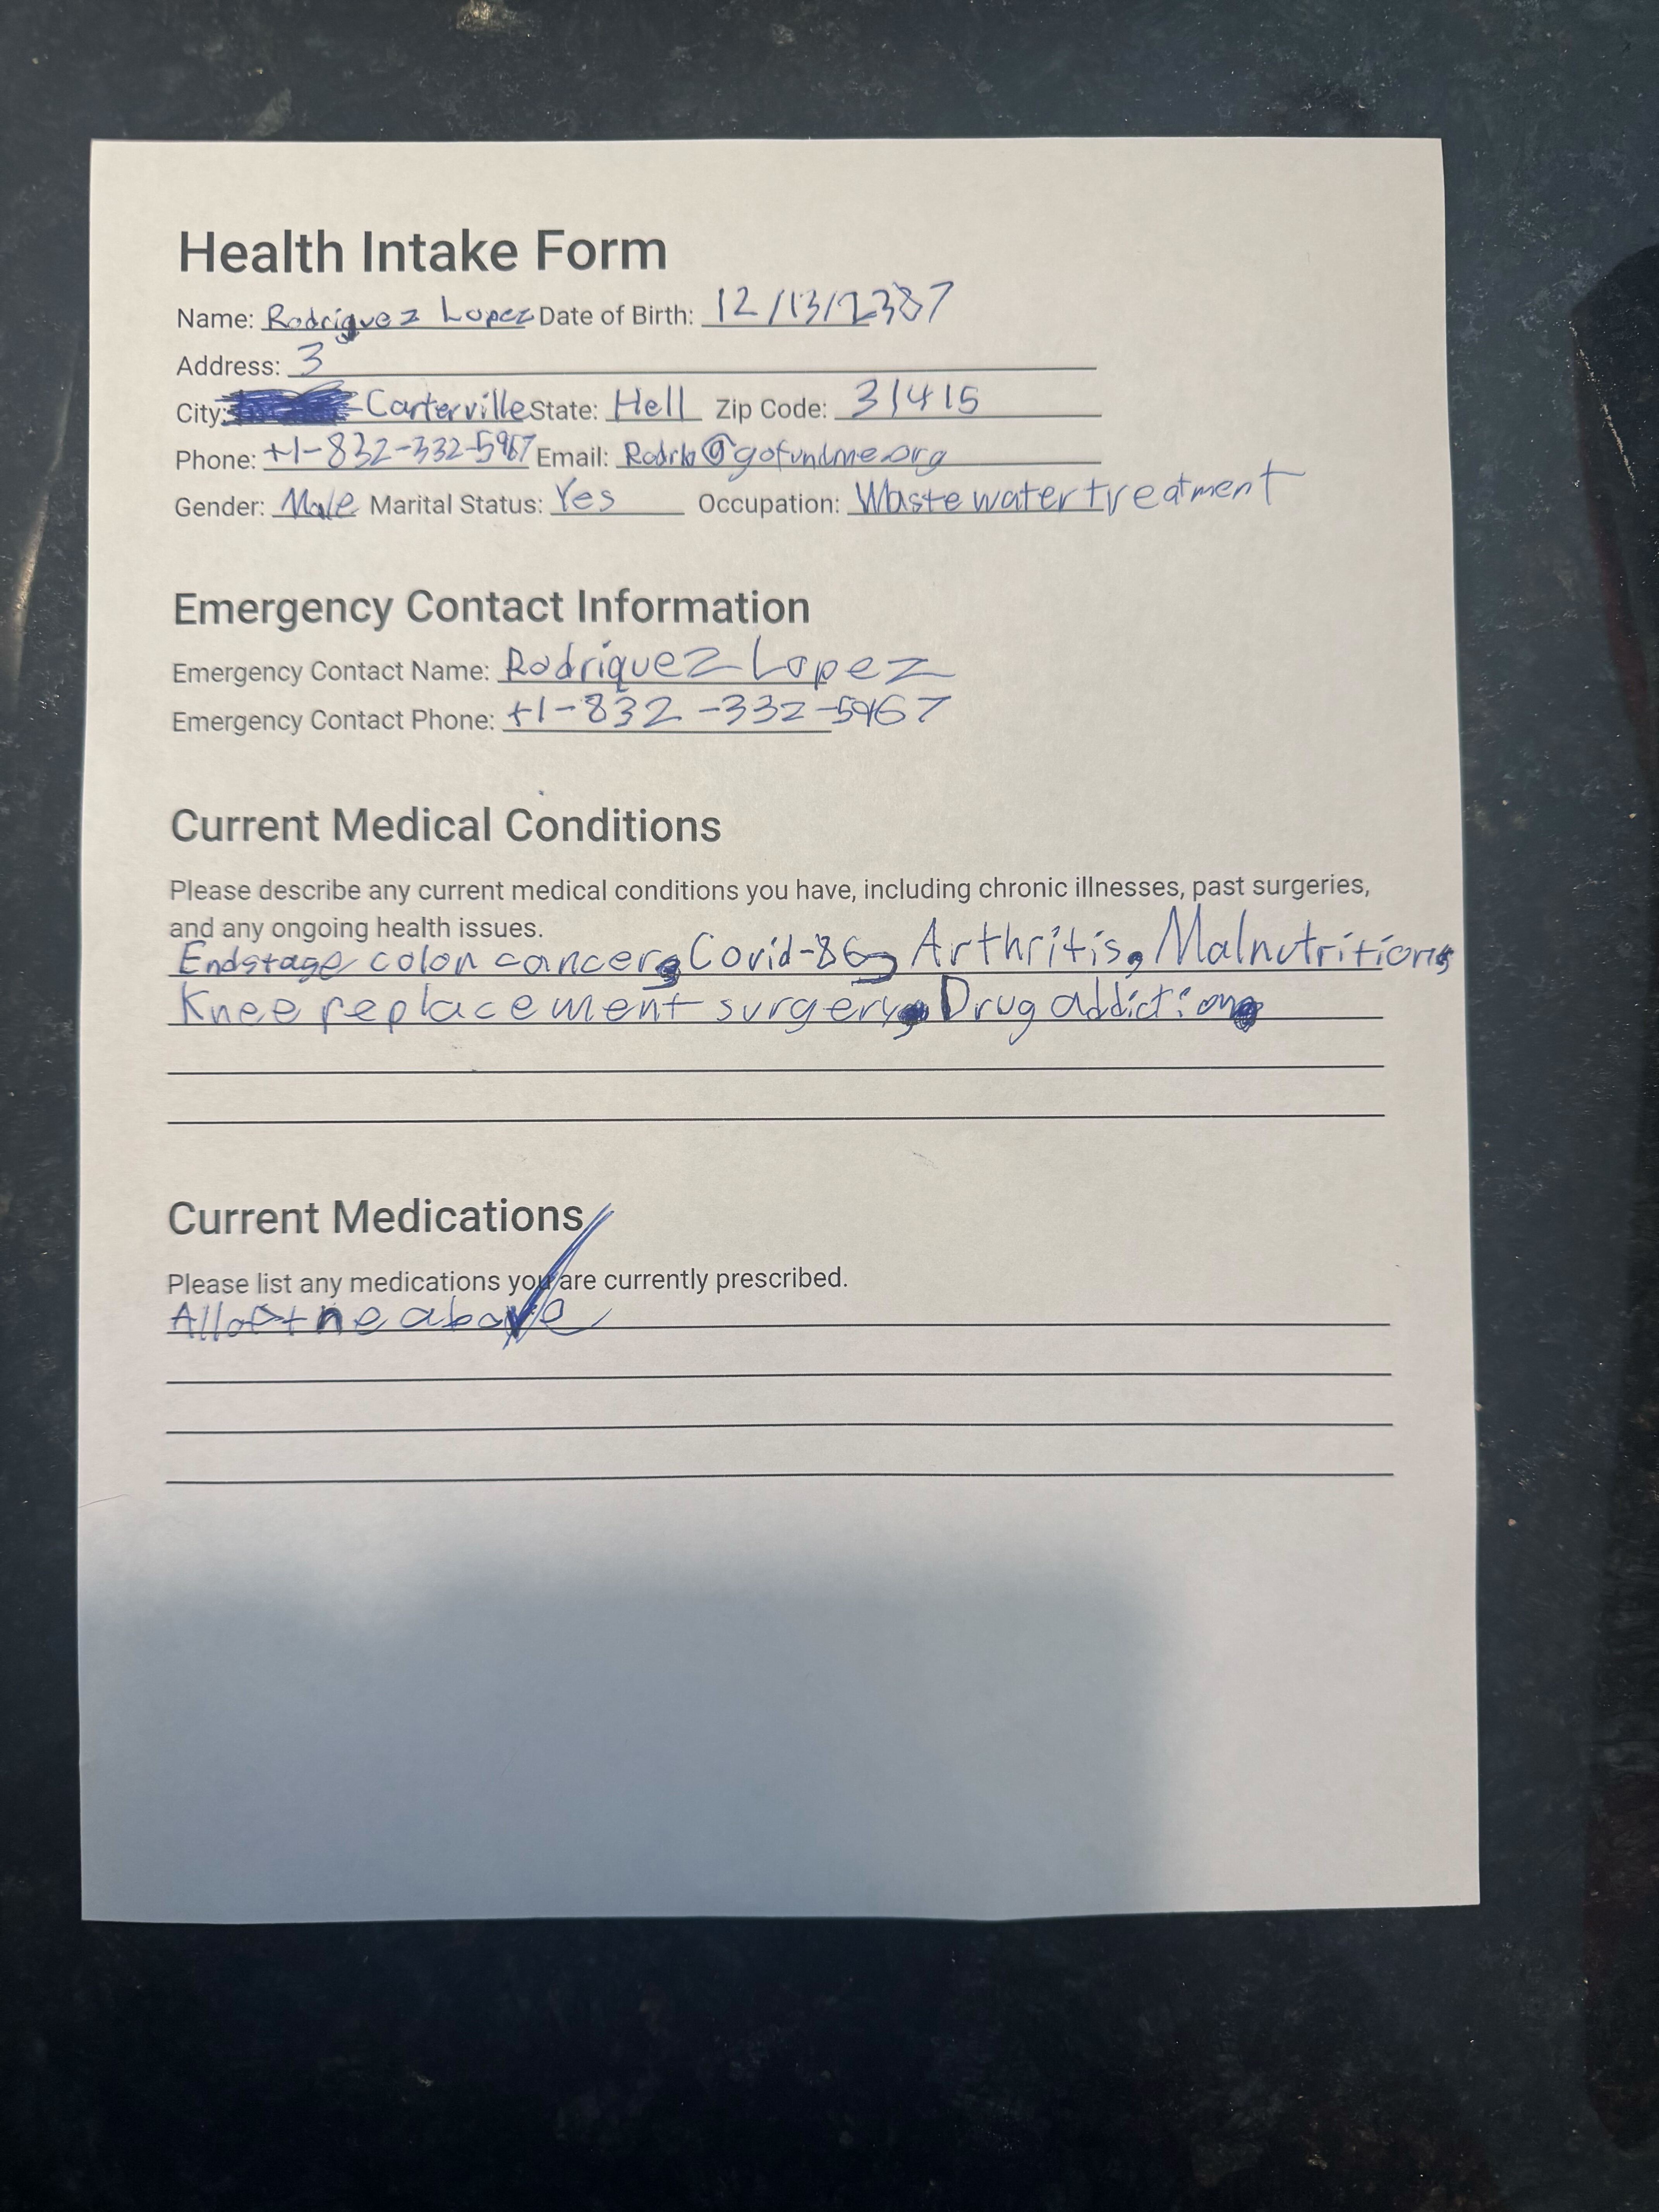 Health Intake Form
Name: Rodriguez Lopez Date of Birth: 12/13/2387
Address: 3
City: Carterville State: Hell Zip Code: 31415
Phone: +1-832-332-5967 Email: @gofundme.org
Gender: Male Marital Status: Yes Occupation: Waste water treatment
Emergency Contact Information
Emergency Contact Name: Rodriguez Lopez
Emergency Contact Phone: +1-832-332-5967
Current Medical Conditions
Please describe any current medical conditions you have, including chronic illnesses, past surgeries,
and any ongoing health issues.
Endstage colon cancer, Covid-86, Arthritis, Malnutrition,
Knee replacement surgery, Drug addiction
Current Medications
Please list any medications you are currently prescribed.
All of the above